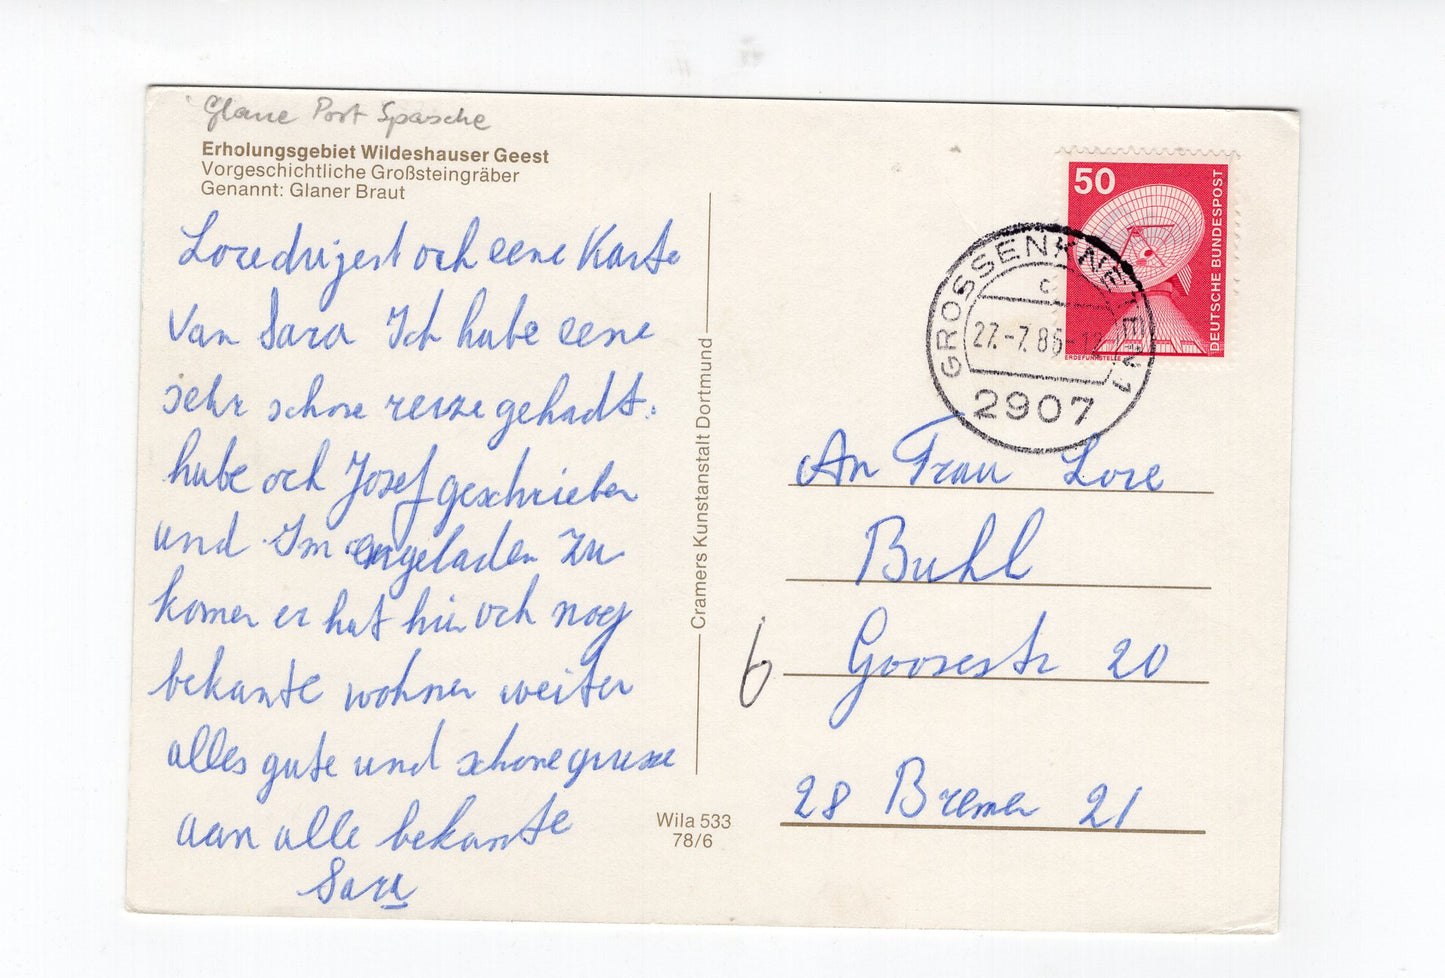 Glane Post Spasche
Erholungsgebiet Wildeshauser Geest
Vorgeschichtliche Großsteingräber
Genannt: Glaner Braut
Lore och eene Karte
Van Sara Ich habe eene
sehr schone reize gehadt.
habe och Josef geschrieben
und Im engeladen zu
komen er hat hir och nog
bekante wohnen weiter
alles gute und schone grusse
aan alle bekante
Sara
Cramers Kunstanstalt Dortmund
Wila 533
78/6
50
DEUTSCHE BUNDESPOST
ERDEFUNKSTELLE
GROSSENKNETEN 1
c
27.-7.86-12
2907
An Frau Lore
Buhl
Goosestr 20
28 Bremen 21
6